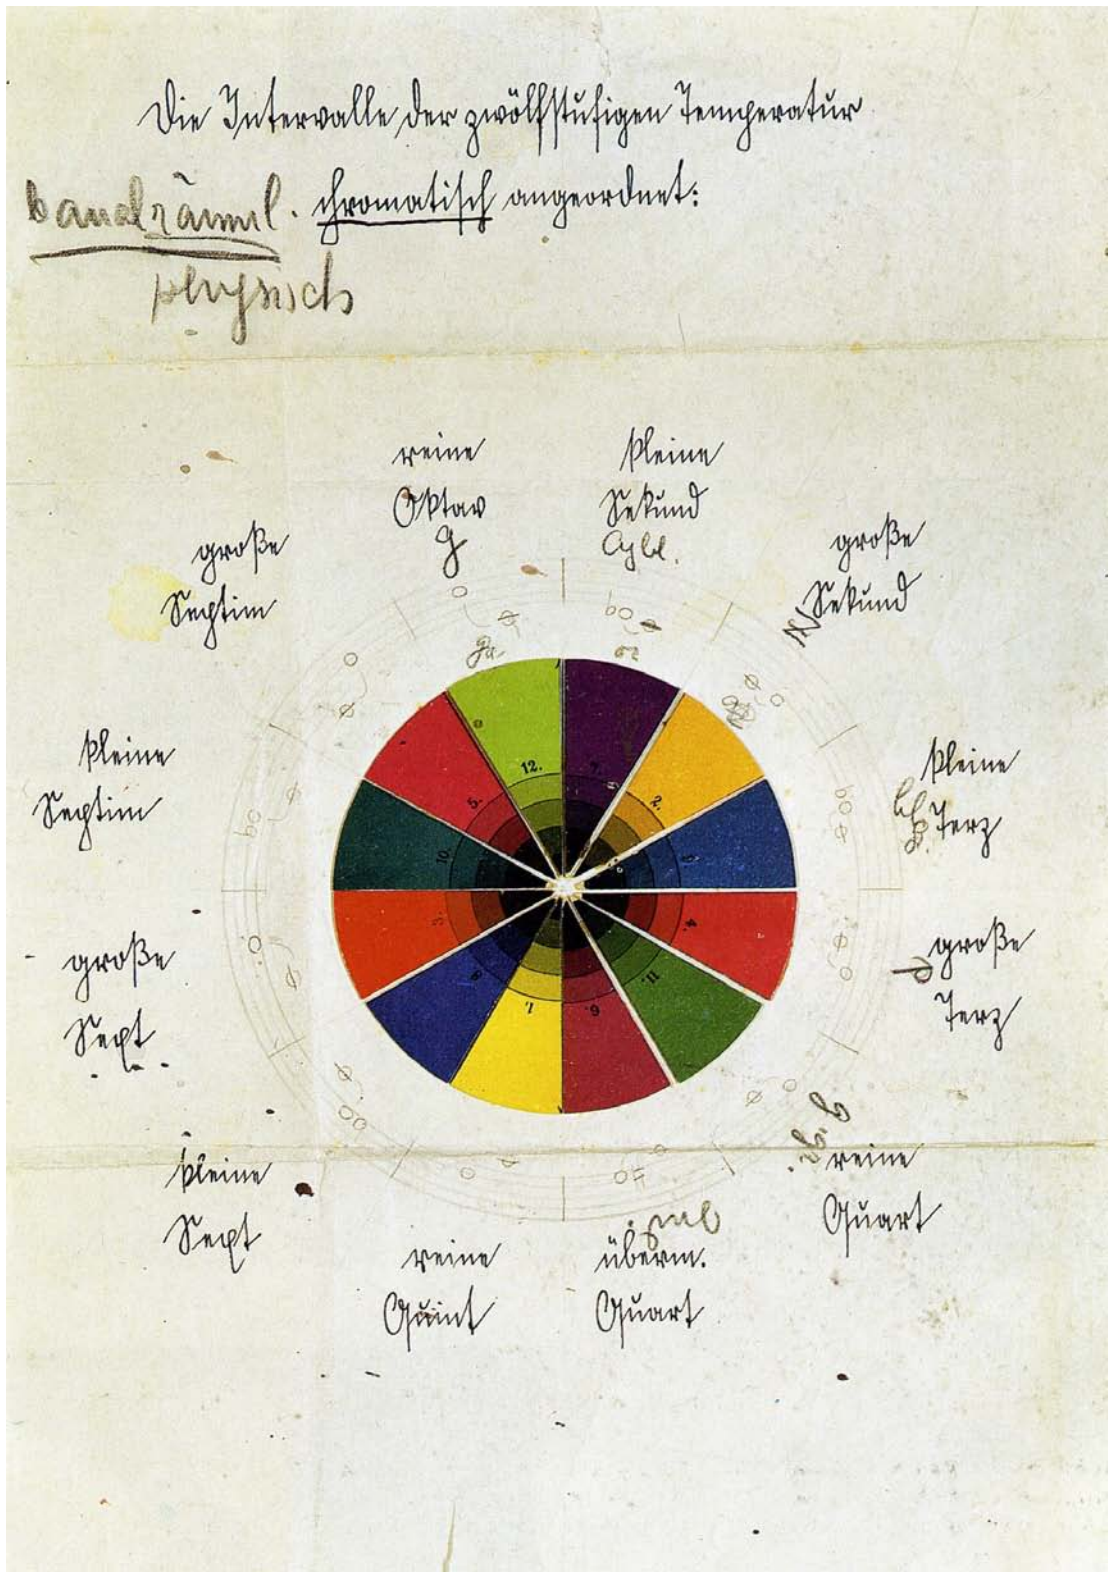 Die Intervalle der zwölfstufigen Temperatur
chromatisch angeordnet:
physisch
reine
Oktav
g
kleine
Sekund
große
Sekund
kleine
Terz
große
Terz
reine
Quart
überm.
Quart
reine
Quint
kleine
Sext
große
Sext
kleine
Septim
große
Septim
12.
2.
4.
11.
6.
1.
8.
3.
10.
5.